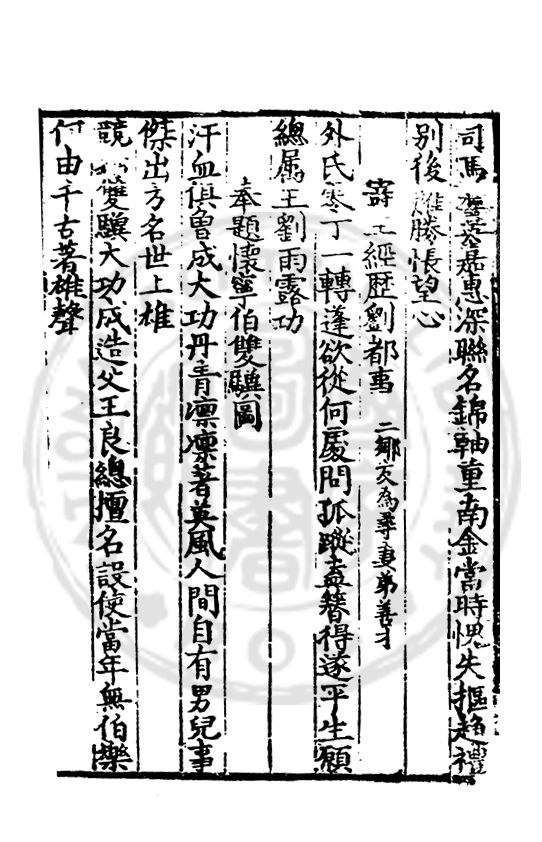 司馬嘉惠深聯名錦軸重南金當時愧失摳趨禮
別後難勝悵望心
寄王經歷劉都事 二鄉友為尋妻弟善才
外氏零丁一轉蓬欲從何處問孤蹤盍簪得遂平生願
總属王劉雨露功
奉題懷寧伯雙驥圖
汗血俱曾成大功丹青凛凛著英風人間自有男兒事
傑出方名世上雄
競雙驥大功成造父王良總擅名設使當年無伯樂
何由千古著雄聲